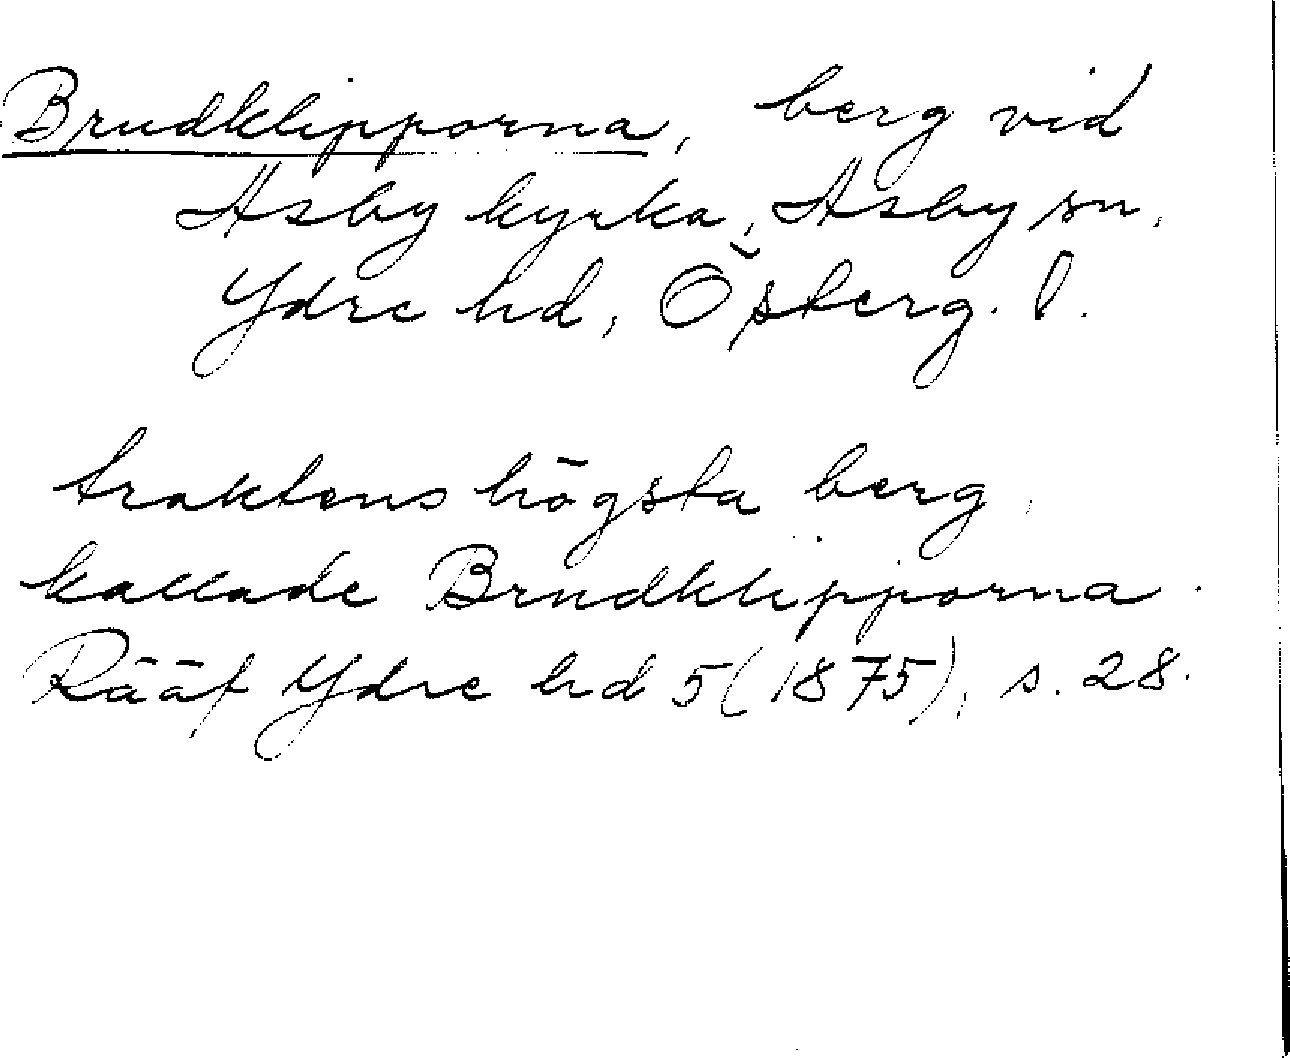 Brudklipporna, berg vid
Asby kyrka, Asby sn,
Ydre hd, Österg. l.
traktens högsta berg,
kallade Brudklipporna.
Rääf Ydre hd 5 (1875), s. 28.